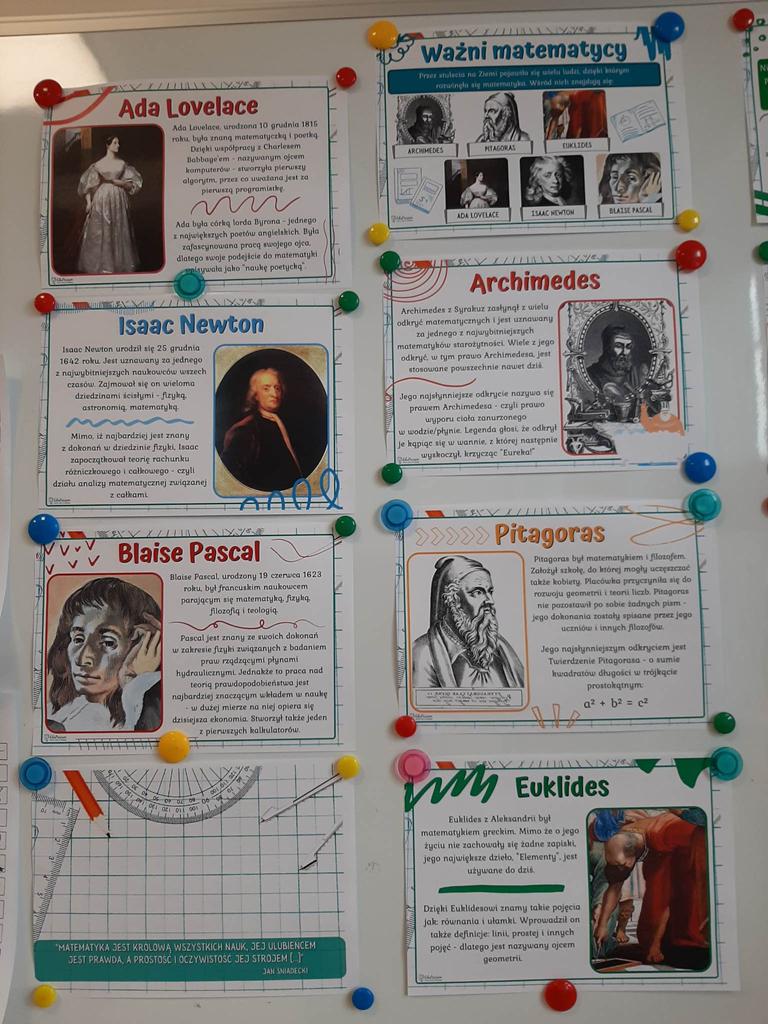 Ada Lovelace
Ada Lovelace, urodzona 10 grudnia 1815
roku, była znaną matematyczką i poetką.
Dzięki współpracy z Charlesem
Babbage'em - nazywanym ojcem
komputerów - stworzyła pierwszy
algorytm, przez co uważana jest za
pierwszą programistkę.
Ada była córką lorda Byrona - jednego
z największych poetów angielskich. Była
zafascynowana pracą swojego ojca,
dlatego swoje podejście do matematyki
opisywała jako "naukę poetycką".
Ważni matematycy
Przez stulecia na Ziemi pojawiło się wielu ludzi, dzięki którym
rozwinęła się matematyka. Wśród nich znajdują się:
ARCHIMEDES
PITAGORAS
EUKLIDES
ADA LOVELACE
ISAAC NEWTON
BLAISE PASCAL
Isaac Newton
Isaac Newton urodził się 25 grudnia
1642 roku. Jest uznawany za jednego
z najwybitniejszych naukowców wszech
czasów. Zajmował się on wieloma
dziedzinami ścisłymi - fizyką,
astronomią, matematyką.
Mimo, iż najbardziej jest znany
z dokonań w dziedzinie fizyki, Isaac
zapoczątkował teorię rachunku
różniczkowego i całkowego - czyli
działu analizy matematycznej związanej
z całkami.
Archimedes
Archimedes z Syrakuz zasłynął z wielu
odkryć matematycznych i jest uznawany
za jednego z najwybitniejszych
matematyków starożytności. Wiele z jego
odkryć, w tym prawo Archimedesa, jest
stosowane powszechnie nawet dziś.
Jego najsłynniejsze odkrycie nazywa się
prawem Archimedesa - czyli prawo
wyporu ciała zanurzonego
w wodzie/płynie. Legenda głosi, że odkrył
je kąpiąc się w wannie, z której następnie
wyskoczył, krzycząc "Eureka!"
Blaise Pascal
Blaise Pascal, urodzony 19 czerwca 1623
roku, był francuskim naukowcem
parającym się matematyką, fizyką,
filozofią i teologią.
Pascal jest znany ze swoich dokonań
w zakresie fizyki związanych z badaniem
praw rządzącymi płynami
hydraulicznymi. Jednakże to praca nad
teorią prawdopodobieństwa jest
najbardziej znaczącym wkładem w naukę
- w dużej mierze na niej opiera się
dzisiejsza ekonomia. Stworzył także jeden
z pierwszych kalkulatorów.
Pitagoras
Pitagoras był matematykiem i filozofem.
Założył szkołę, do której mogły uczęszczać
także kobiety. Placówka przyczyniła się do
rozwoju geometrii i teorii liczb. Pitagoras
nie pozostawił po sobie żadnych pism -
jego dokonania zostały spisane przez jego
uczniów i innych filozofów.
Jego najsłynniejszym odkryciem jest
Twierdzenie Pitagorasa - o sumie
kwadratów długości w trójkącie
prostokątnym:
a² + b² = c²
"MATEMATYKA JEST KRÓLOWĄ WSZYSTKICH NAUK, JEJ ULUBIEŃCEM
JEST PRAWDA, A PROSTOŚĆ I OCZYWISTOŚĆ JEJ STROJEM [...]"
JAN ŚNIADECKI
Euklides
Euklides z Aleksandrii był
matematykiem greckim. Mimo że o jego
życiu nie zachowały się żadne zapiski,
jego największe dzieło, "Elementy", jest
używane do dziś.
Dzięki Euklidesowi znamy takie pojęcia
jak: równania i ułamki. Wprowadził on
także definicje: linii, prostej i innych
pojęć - dlatego jest nazywany ojcem
geometrii.